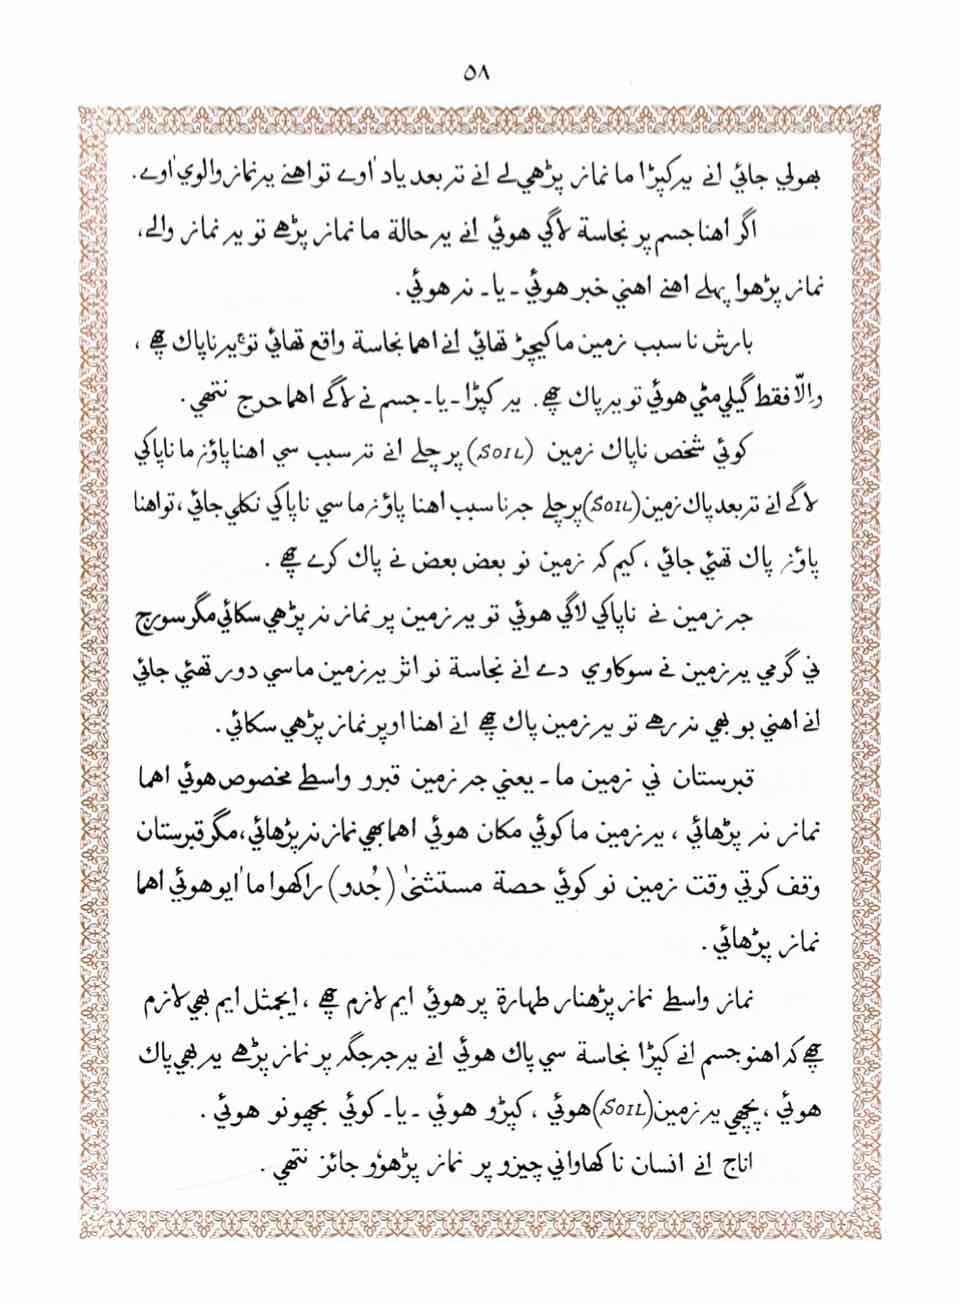 ٥٨
بهولي جائي انے يه كپڑا ما نماز پڑهي لے انے ته بعد ياد اٰوے تو اهنے يه نماز والوي اٰوے.
اگر اهنا جسم پر نجاسة لاگي هوئي انے يه حالة ما نماز پڑهے تو يه نماز والے،
نماز پڑهوا پہلے اهنے اهني خبر هوئي ـ يا ـ نه هوئي.
بارش نا سبب زمين ما كيچڑ تهائي انے اهما نجاسة واقع تهائي تو يه ناپاك چهے،
والّا فقط گيلي مٹي هوئي تو يه پاك چهے. يه كپڑا ـ يا ـ جسم نے لاگے اهما حرج نتهي.
كوئي شخص ناپاك زمين (SOIL) پر چلے انے ته سبب سي اهنا پاؤں ما ناپاكي
لاگے انے ته بعد پاك زمين (SOIL) پر چلے جه نا سبب اهنا پاؤں ما سي ناپاكي نكلي جائي، تو اهنا
پاؤں پاك تهئي جائي، كيم كه زمين نو بعض بعض نے پاك كرے چهے.
جه زمين نے ناپاكي لاگي هوئي تو يه زمين پر نماز نه پڑهي سكائي مگر سورج
ني گرمي يه زمين نے سوكاوي دے انے نجاسة نو اثر يه زمين ما سي دور تهئي جائي
انے اهني بو بهي نه رهے تو يه زمين پاك چهے انے اهنا اوپر نماز پڑهي سكائي.
قبرستان ني زمين ما ـ يعني جه زمين قبرو واسطے مخصوص هوئي اهما
نماز نه پڑهائي، يه زمين ما كوئي مكان هوئي اهما بهي نماز نه پڑهائي، مگر قبرستان
وقف كرتي وقت زمين نو كوئي حصة مستثنىٰ (جُدو) راكهوا ما اٰيو هوئي اهما
نماز پڑهائي.
نماز واسطے نماز پڑهنار طهارة پر هوئي ايم لازم چهے، ايجمثل ايم بهي لازم
چهے كه اهنو جسم انے كپڑا نجاسة سي پاك هوئي انے يه جه جگه پر نماز پڑهے يه بهي پاك
هوئي، پچهي يه زمين (SOIL) هوئي، كپڑو هوئي ـ يا ـ كوئي بچهونو هوئي.
اناج انے انسان نا كهاواني چيزو پر نماز پڑهوؤ جائز نتهي.